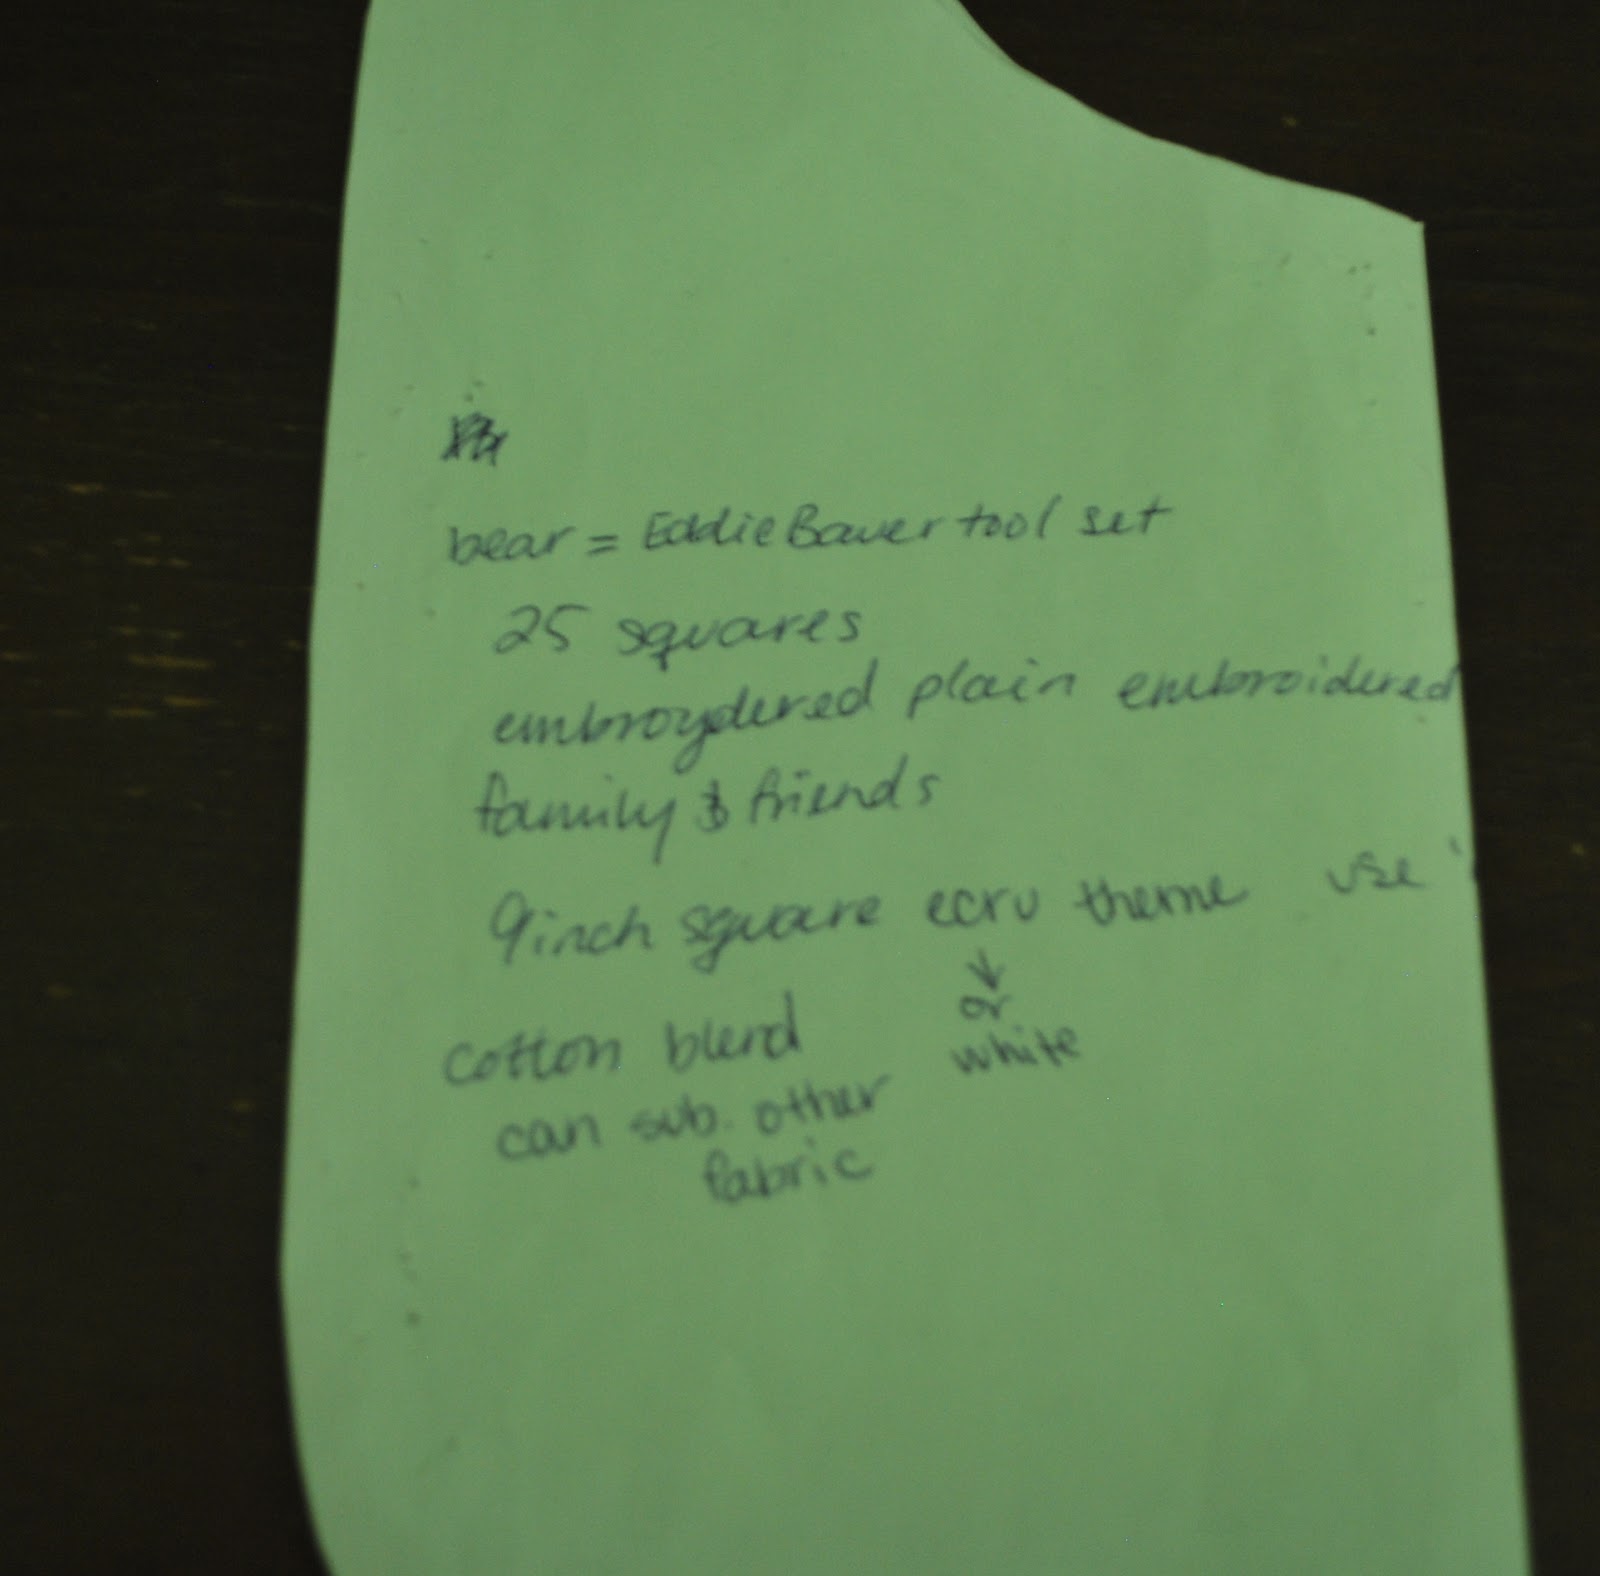 bear = Eddie Bauer tool set
25 squares
embroydered plain embroidered
family & friends
9inch square ecru theme use
or
white
cotton blend
can sub. other
fabric